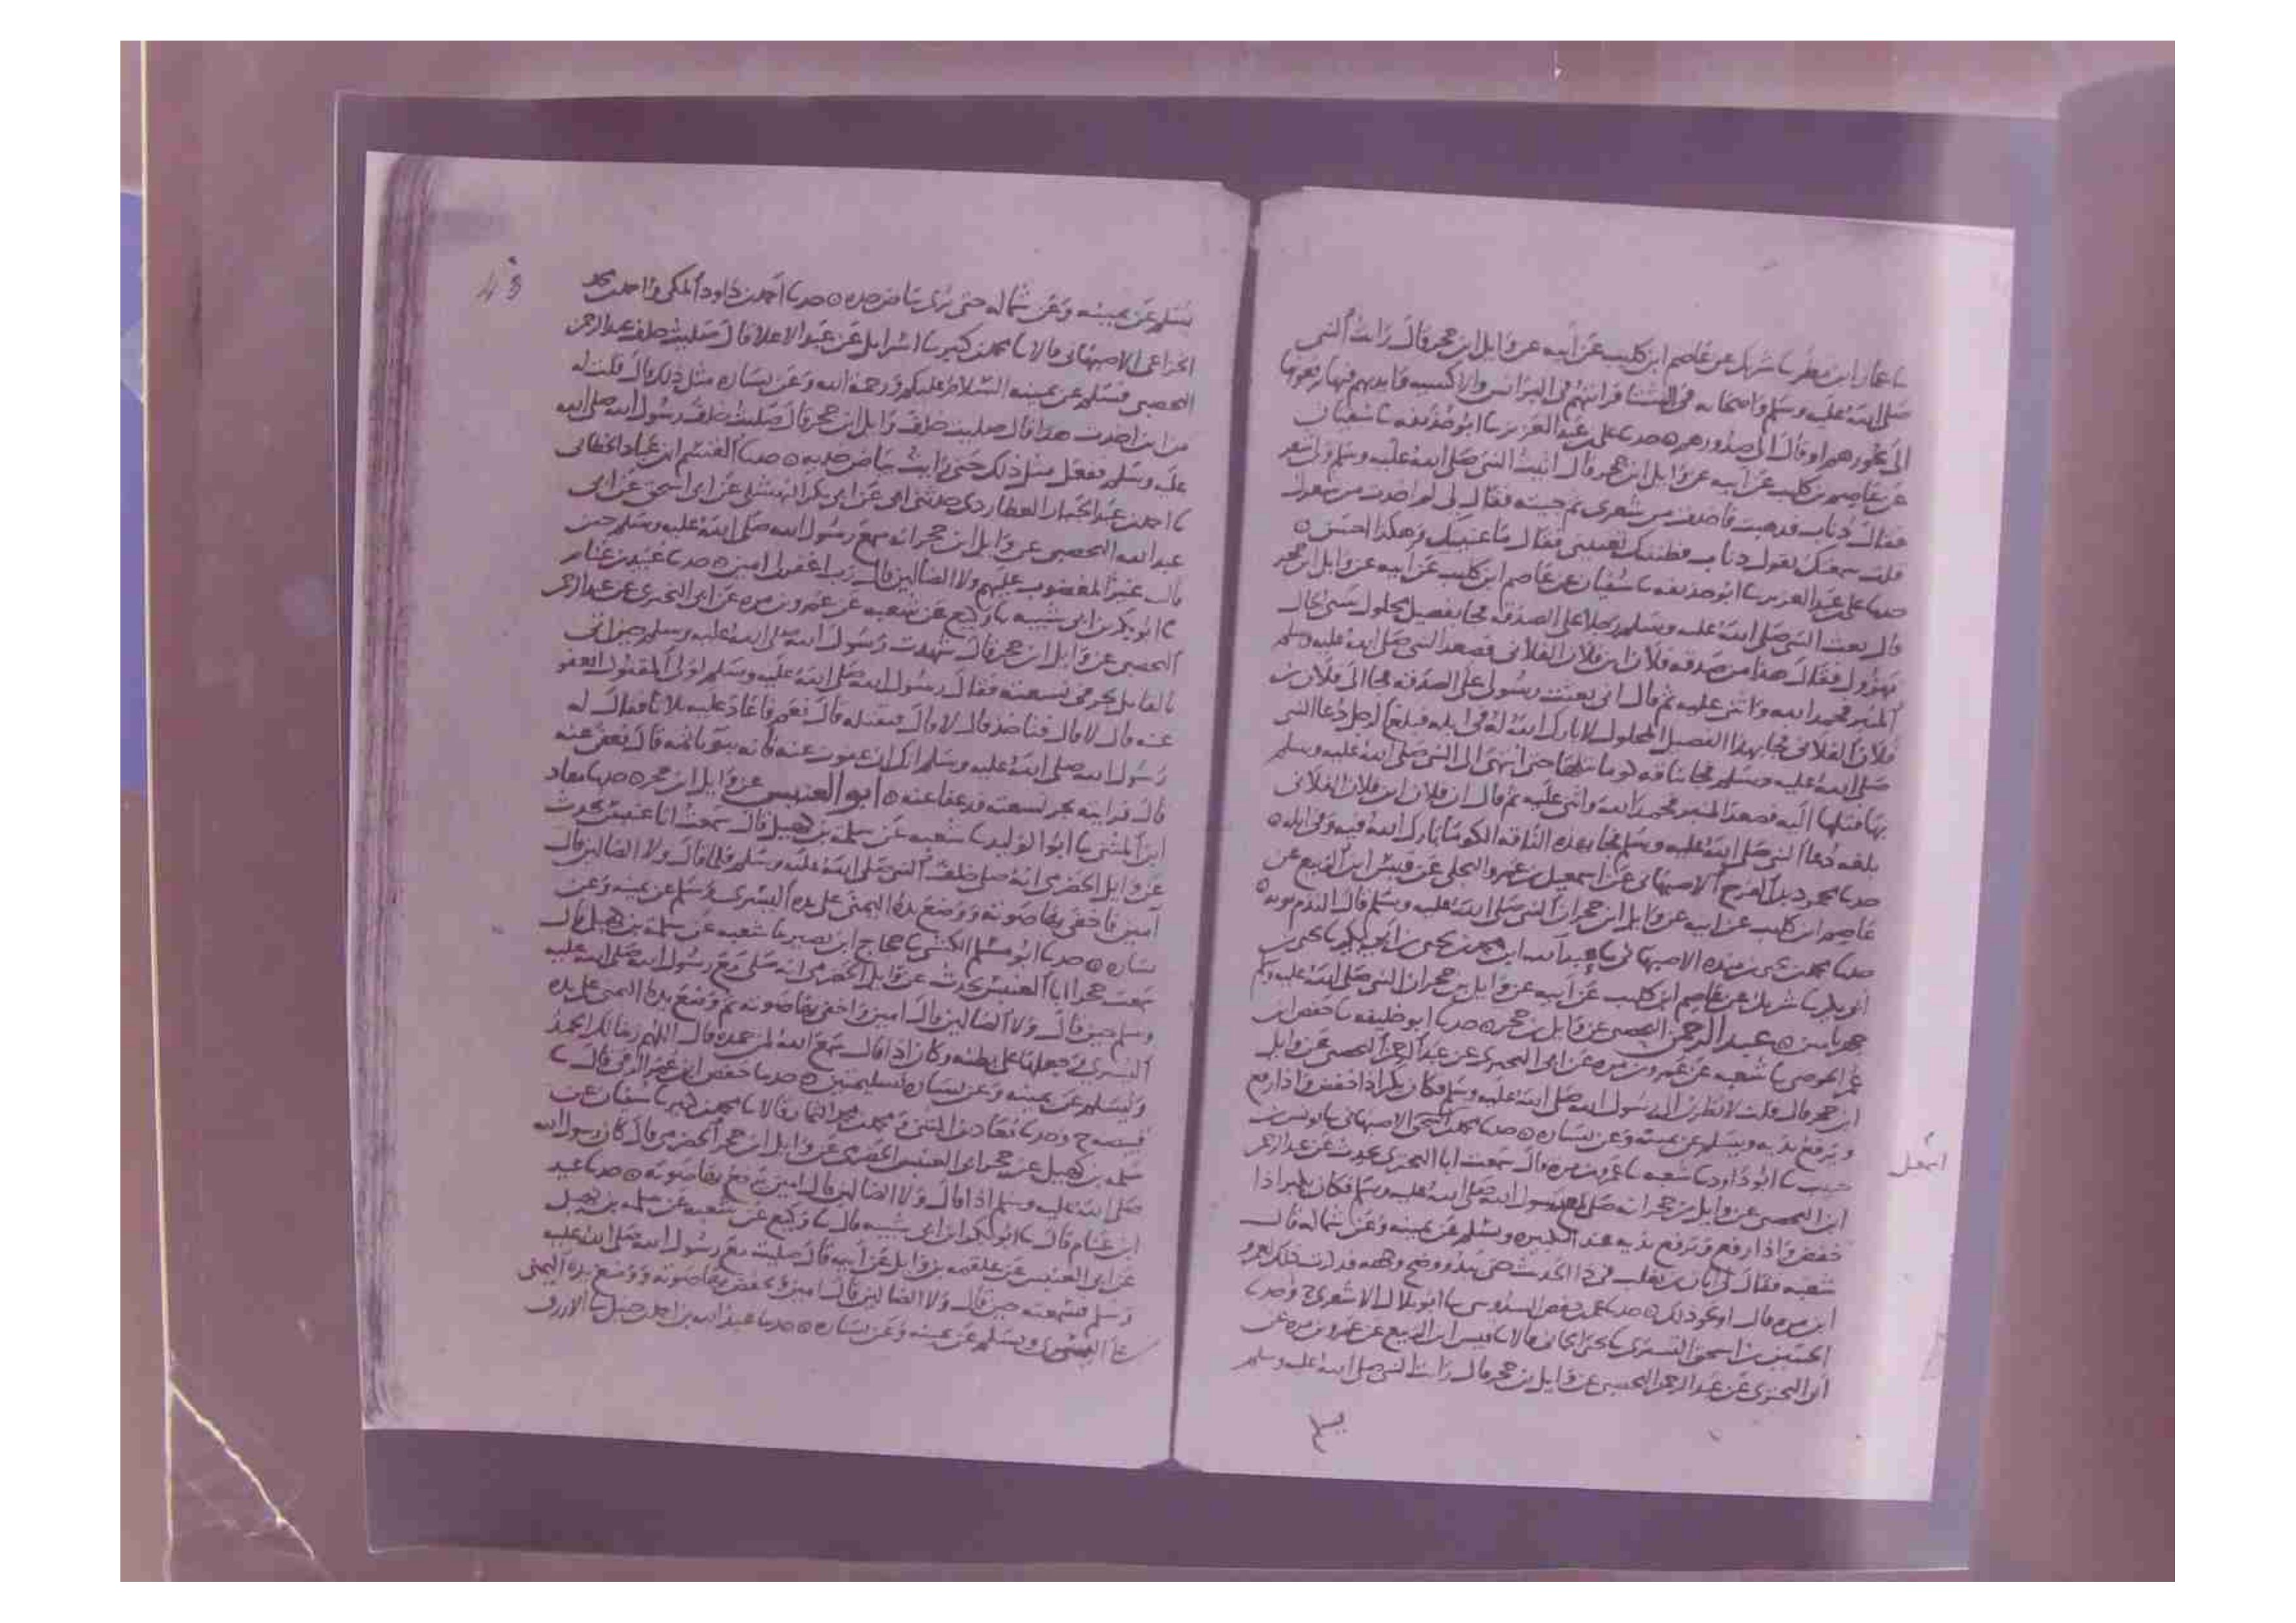 نا عمار ابن مطر نا شريك عن عاصم ابن كليب عن أبيه عن وايل ابن حجر قال رايت النبي
صلى الله عليه وسلم واصحابه في الشتا فرايتهم في البرانس والاكسيه وايديهم فيها يرفعونها
الى نحورهم او قال الى صدورهم ٥ حدنا علي بن عبد العزيز نا ابو حذيفه نا سفيان
عن عاصم بن كليب عن ابيه عن وايل ابن حجر قال اتيت النبي صلى الله عليه وسلم ولي شعر
فقال ذباب فذهبت فاخذت من شعري ثم جيته فقال لي لم اخذت من شعرك
قلت سمعتك تقول ذباب فظننتك تعنيني فقال ما عنيتك وهكذا احسن ٥
حدنا علي بن عبد العزيز نا ابو حذيفه نا سفيان عن عاصم ابن كليب عن ابيه عن وايل ابن حجر
قال بعث النبي صلى الله عليه وسلم رجلا على الصدقه فجا بفصيل مخلول سيي الحال
مهزول فقال هذا من صدقه فلان ابن فلان الفلاني فصعد النبي صلى الله عليه وسلم
المنبر فحمد الله واثنى عليه ثم قال اني بعثت رسولي على الصدقه فجا الى فلان بن
فلان الفلاني فجا بهذا الفصيل المخلول لا بارك الله له في ابله فبلغ الرجل دعا النبي
صلى الله عليه وسلم فجا بناقه كوما يتلها حتى انتهى الى النبي صلى الله عليه وسلم
بها فتلها اليه فصعد المنبر فحمد الله واثنى عليه ثم قال ان فلان ابن فلان الفلاني
بلغه دعا النبي صلى الله عليه وسلم فجا بهذه الناقه الكوما بارك الله فيه وفي ابله ٥
حدنا محمود بن الفرج الاصبهاني عن اسمعيل بن عمرو البجلي عن قيس ابن الربيع عن
عاصم ابن كليب عن ابيه عن وايل ابن حجر ان النبي صلى الله عليه وسلم قال الندم توبه ٥
حدنا محمد بن يحيى بن منده الاصبهاني نا عبد الله ابن محمد بن يحيى بن ابي بكير نا يحيى بن
ابي بكير نا شريك عن عاصم ابن كليب عن ابيه عن وايل بن حجر ان النبي صلى الله عليه وسلم
جهر بامين ٥ عبد الرحمن اليحصبي عن وايل بن حجر ٥ حدنا ابو خليفه نا حفص ابن
عمر الحوضي نا شعبه عن عمرو بن مره عن ابي البختري عن عبد الرحمن اليحصبي عن وايل
ابن حجر قال قلت لانظرن الى رسول الله صلى الله عليه وسلم فكان يكبر اذا خفض واذا رفع
ويرفع يديه ويسلم عن يمينه وعن يساره ٥ حدنا محمد بن اسحق الاصبهاني نا يونس بن
حبيب نا ابو داود نا شعبه نا عمرو بن مره قال سمعت ابا البختري يحدث عن عبد الرحمن
ابن اليحصبي عن وايل بن حجر انه صلى مع رسول الله صلى الله عليه وسلم فكان يكبر اذا
خفض واذا رفع ويرفع يديه عند التكبيره ويسلم عن يمينه وعن شماله قال
شعبه فقال لي ابان بن تغلب في ذا الحديث حتى يبدو وضح وجهه قد لرت ذلك لعمرو
ابن مره قال او نحو ذلك ٥ حدنا عمر بن حفص السدوسي نا ابو بلال الاشعري ح وحدنا
الحسين بن اسحق التستري نا يحيى الحماني قالا نا قيس ابن الربيع عن عمرو بن مره عن
ابي البختري عن عبد الرحمن اليحصبي عن وايل بن حجر قال رايت النبي صلى الله عليه وسلم
يسلم
43
يسلم عن يمينه وعن شماله حتى نرى بياض خده ٥ حدنا احمد بن داود المكي واحمد بن محمد
الخزاعي الاصبهاني قالا نا محمد بن كثير نا اسرايل عن عبد الاعلا قال صليت خلف عبد الرحمن
اليحصبي فسلم عن يمينه السلام عليكم ورحمة الله وعن يساره مثل ذلك قال قلت له
من اين اخذت هذا قال صليت خلف وايل ابن حجر قال صليت خلف رسول الله صلى الله
عليه وسلم ففعل مثل ذلك حتى رايت بياض خديه ٥ حدنا القسم ابن عباد الخطابي
نا احمد بن عبد الجبار العطاردي حدثني ابي عن ابي بكر النهشلي عن ابي اسحق عن ابي
عبد الله اليحصبي عن وايل ابن حجر انه سمع رسول الله صلى الله عليه وسلم حين
قال غير المغضوب عليهم ولا الضالين قال رب اغفر لي امين ٥ حدنا عبيد بن غنام
نا ابو بكر بن ابي شيبه نا وكيع عن شعبه عن عمرو بن مره عن ابي البختري عن عبد الرحمن
اليحصبي عن وايل ابن حجر قال شهدت رسول الله صلى الله عليه وسلم حين اتى
بالقاتل يجر في نسعته فقال رسول الله صلى الله عليه وسلم لولي المقتول اتعفو
عنه قال لا قال فتاخذ قال لا قال فتقتله قال نعم فاعاد عليه ثلاثا فقال له
رسول الله صلى الله عليه وسلم انك ان عفوت عنه فانه يبو باثمه قال فعفى عنه
قال فرايته يجر نسعته قد عفا عنه ٥ ابو العنبس عن وايل ابن حجر ٥ حدنا معاذ
ابن المثنى نا ابو الوليد نا شعبه عن سلمه بن كهيل قال سمعت ابا عنبس يحدث
عن وايل الحضرمي انه صلى خلف النبي صلى الله عليه وسلم فلما قال ولا الضالين قال
امين فاخفى بها صوته ووضع يده اليمنى على يده اليسرى وسلم عن يمينه وعن
يساره ٥ حدنا ابو مسلم الكشي نا حجاج ابن نصير نا شعبه عن سلمه بن كهيل قال
سمعت حجرا ابا العنبس يحدث عن وايل الحضرمي انه صلى مع رسول الله صلى الله عليه
وسلم حين قال ولا الضالين قال امين واخفى بها صوته ثم وضع يده اليمنى على يده
اليسرى وجعلها على بطنه وكان اذا قال سمع الله لمن حمده قال اللهم ربنا لك الحمد
ويسلم عن يمينه وعن يساره تسليمتين ٥ حدنا حفص ابن عمر الرقي قال نا
قبيصه ح وحدنا معاذ بن المثنى ومحمد بن محمد التمار قالا نا محمد بن كثير نا سفيان عن
سلمه بن كهيل عن حجر ابي العنبس الحضرمي عن وايل ابن حجر الحضرمي قال كان رسول الله
صلى الله عليه وسلم اذا قال ولا الضالين قال امين يرفع بها صوته ٥ حدنا عبيد
ابن غنام قال نا ابو بكر ابن ابي شيبه قال نا وكيع عن شعبه عن سلمه بن كهيل
عن ابي العنبس عن علقمه بن وايل عن ابيه قال صليت مع رسول الله صلى الله عليه
وسلم فسمعته حين قال ولا الضالين قال امين وخفض بها صوته ووضع يده اليمنى
على اليسرى ويسلم عن يمينه وعن يساره ٥ حدنا عبد الله بن احمد بن حنبل نا الازرق